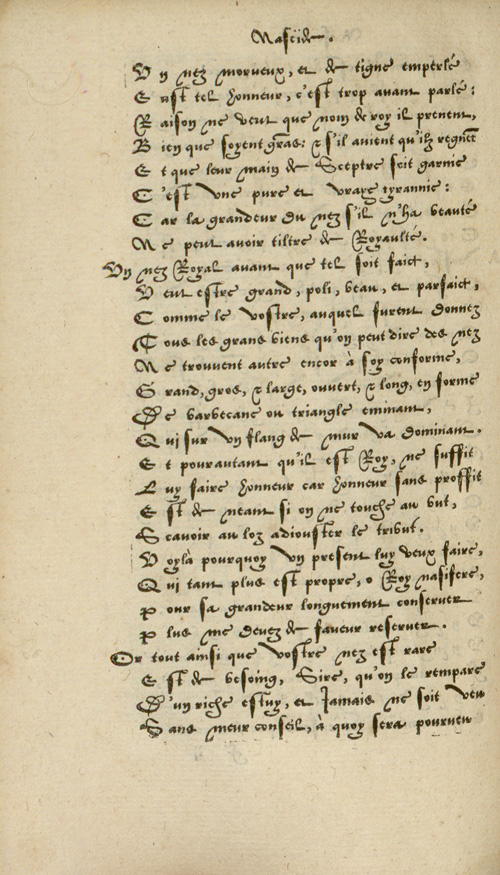 Nasëide.
Un nez morveux, et de tigne emperlé
Eust tel honneur, c'est trop avant parlé:
Raison ne veut que nom de roy il prenent,
Bien que soyent gras: & s'il avient qu'ilz regnēt
Et que leur main de Sceptre soit garnie
C'est une pure et vraye tyrannie:
Car la grandeur du nez s'il n'ha beauté
Ne peut avoir tiltre de Royaulté.
Un nez Royal avant que tel soit faict,
Veut estre grand, poli, beau, et parfaict,
Comme le vostre, auquel furent donnez
Tous les grans biens qu'on peut dire des nez
Ne trouvent autre encor à soy conforme,
Grand, gros, & large, ouvert, & long, en forme
De barbecane ou triangle eminant,
Qui sur un flang de mur va dominant.
Et pourautant qu'il est Roy, ne suffit
Luy faire honneur car honneur sans proffit
Est de neant si on ne touche au but,
Scavoir au loz adiouster le tribut.
Voylà pourquoy un present luy veux faire,
Qui tant plus est propre, o Roy nasifere,
Pour sa grandeur longuement conserver
Plus me devez de faveur reserver.
Or tout ainsi que vostre nez est rare
Est de besoing, Sire, qu'on le rempare
D'un riche estuy, et Jamais ne soit veu
Sans meur conseil, à quoy sera pourveu